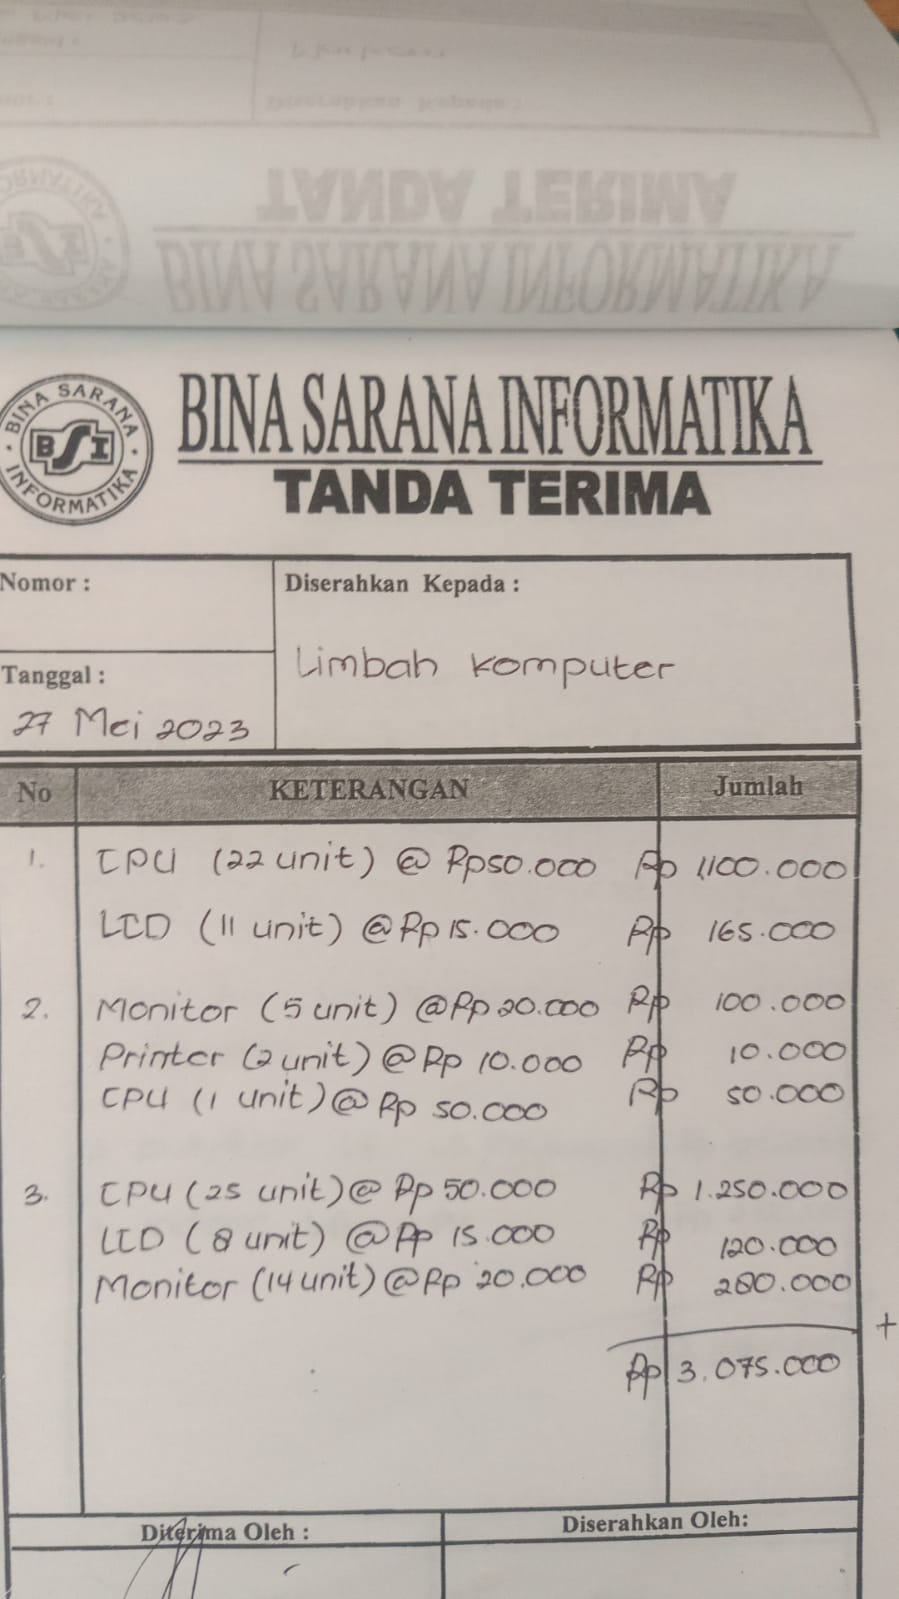 TANDA TERIMA
BINA SARANA INFORMATIKA
BINA SARANA INFORMATIKA
BSI
BINA SARANA INFORMATIKA
TANDA TERIMA
Nomor :
Diserahkan Kepada :
Limbah Komputer
Tanggal :
27 Mei 2023
No KETERANGAN Jumlah
1. CPU (22 unit) @ Rp50.000 Rp 1,100.000
LCD (11 unit) @ Rp 15.000 Rp 165.000
2. Monitor (5 unit) @Rp 20.000 Rp 100.000
Printer (2 unit) @ Rp 10.000 Rp 10.000
CPU (1 unit) @ Rp 50.000 Rp 50.000
3. CPU (25 unit) @ Rp 50.000 Rp 1.250.000
LCD (8 unit) @ Rp 15.000 Rp 120.000
Monitor (14 unit) @ Rp 20.000 Rp 280.000
+
Rp 3.075.000
Diterima Oleh : Diserahkan Oleh: